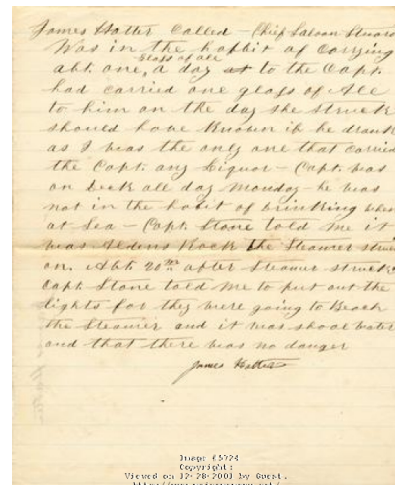 James Hatter Called – Chief Saloon Stuard
Was in the habbit of Carrying
Glass of ale
abt. one, a day to the Capt.
had carried one glass of Ale
to him on the day she struck
should have Known if he drank
as I was the only one that carried
the Capt. any Liquor – Capt. was
on deck all day Monday – he was
not in the habit of drinking when
at Sea – Capt. Stone told me it
was Aldens Rock the Steamer struck
on. Abt. 20 after Steamer struck
Capt Stone told me to put out the
lights for they were going to Beach
the Steamer and it was shoal water
and that there was no danger
James Hatter
Image #5728
Copyright:
Viewed on 12-28-2003 by Guest.